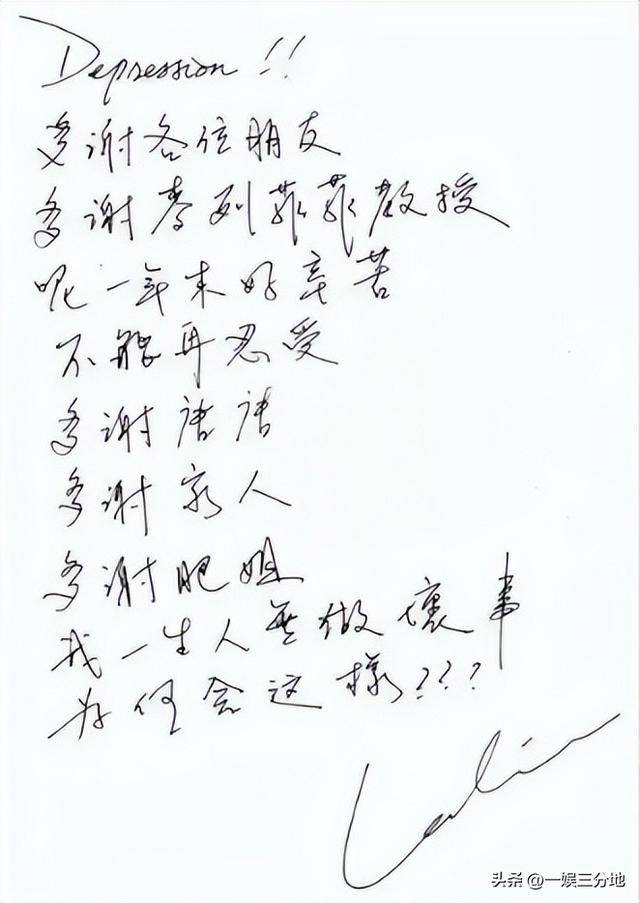 Depression!!
多谢各位朋友
多谢麦列菲菲教授
呢一年来好辛苦
不能再忍受
多谢唐唐
多谢家人
多谢肥姐
我一生人无做壞事
为何会这樣???
Leslie
头条 @一娱三分地